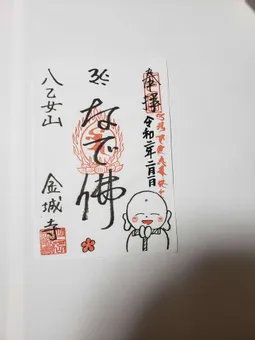 奉拝
令和二年二月一日
なで佛
八乙女山
金城寺